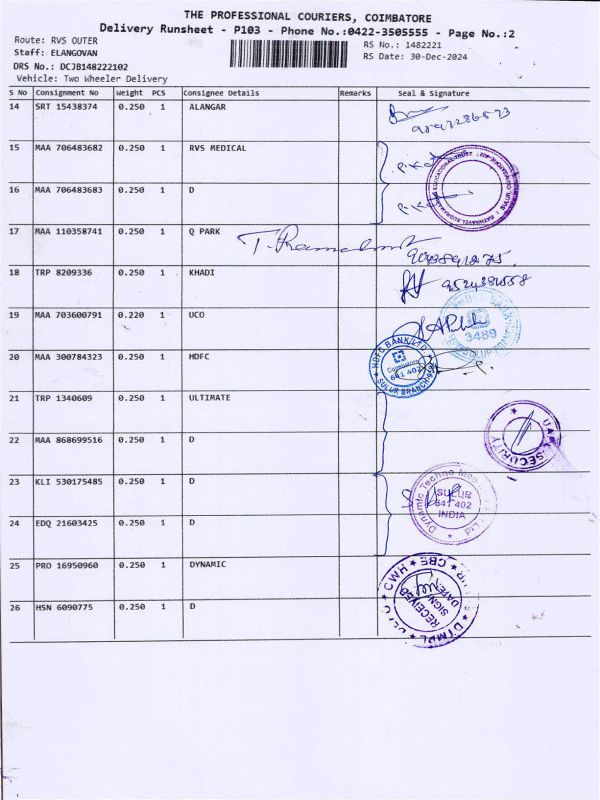 THE PROFESSIONAL COURIERS, COIMBATORE
Delivery Runsheet - P103 - Phone No.:0422-3505555 - Page No.:2
Route: RVS OUTER
Staff: ELANGOVAN
DRS No.: DCJB148222102
Vehicle: Two Wheeler Delivery
RS No.: 1482221
RS Date: 30-Dec-2024
S No Consignment No Weight PCS Consignee Details Remarks Seal & Signature
14 SRT 15438374 0.250 1 ALANGAR
15 MAA 706483682 0.250 1 RVS MEDICAL
16 MAA 706483683 0.250 1 D
17 MAA 110358741 0.250 1 Q PARK
18 TRP 8209336 0.250 1 KHADI
19 MAA 703600791 0.220 1 UCO
3489
20 MAA 300784323 0.250 1 HDFC
HDFC BANK LTD
Coimbatore
641 402
SULUR BRANCH
21 TRP 1340609 0.250 1 ULTIMATE
22 MAA 868699516 0.250 1 D
SECURITY
23 KLI 530175485 0.250 1 D
Dynamic Techno
SULUR
641 402
INDIA
24 EDQ 21603425 0.250 1 D
25 PRO 16950960 0.250 1 DYNAMIC
26 HSN 6090775 0.250 1 D
CWH ★ CBE
RECEIVED
SIGN
DATE